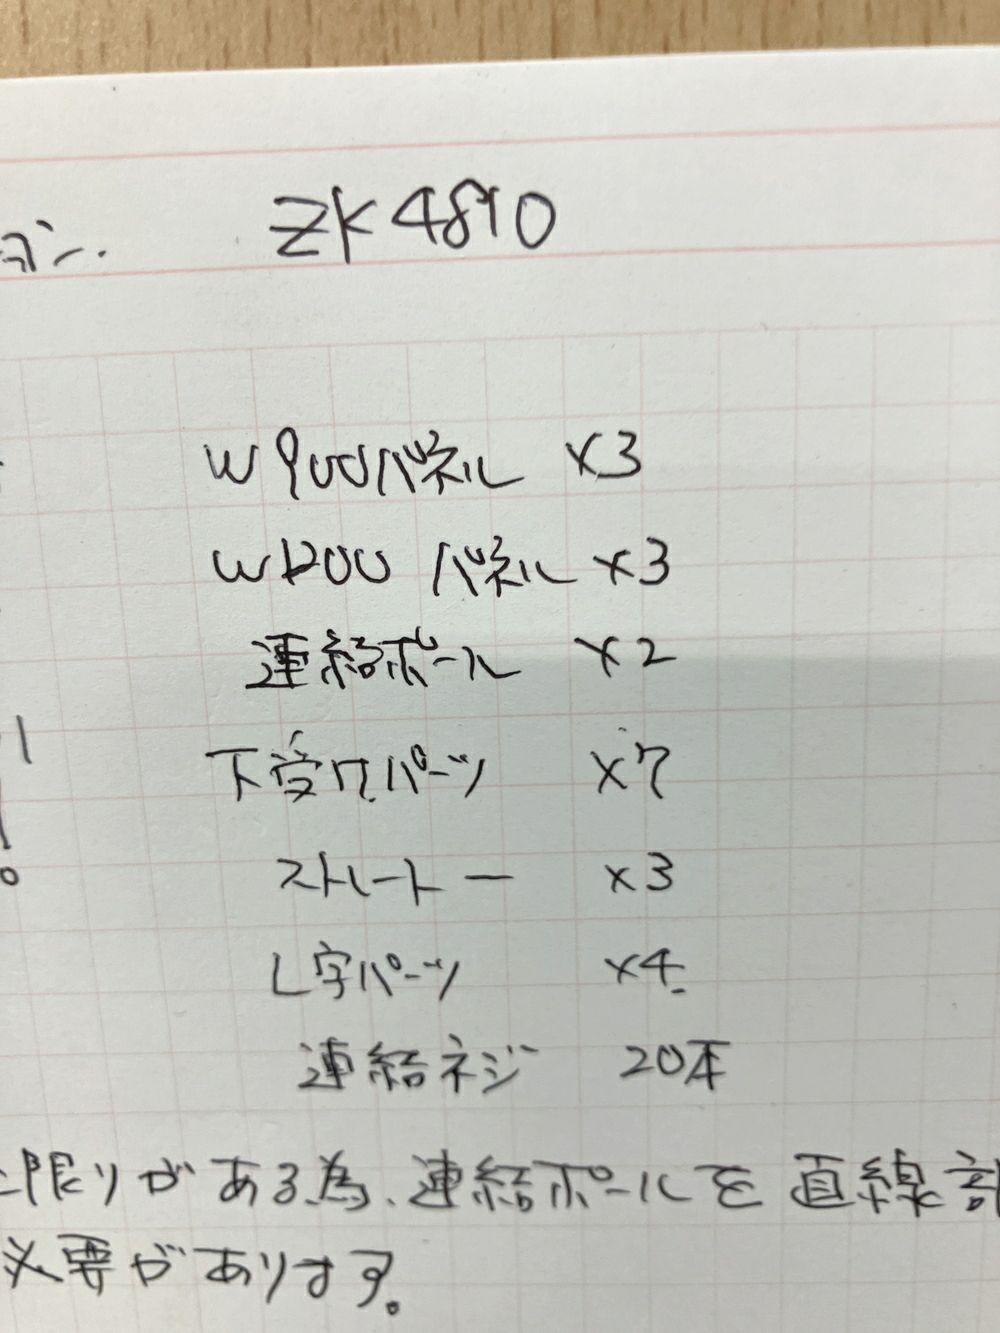 ZK4810
W900パネル ×3
W1200 パネル ×3
連結ポール ×2
下受けパーツ ×7
ストレートー ×3
L字パーツ ×4
連結ネジ 20本
限りがある為、連結ポールを直線部
必要があります。